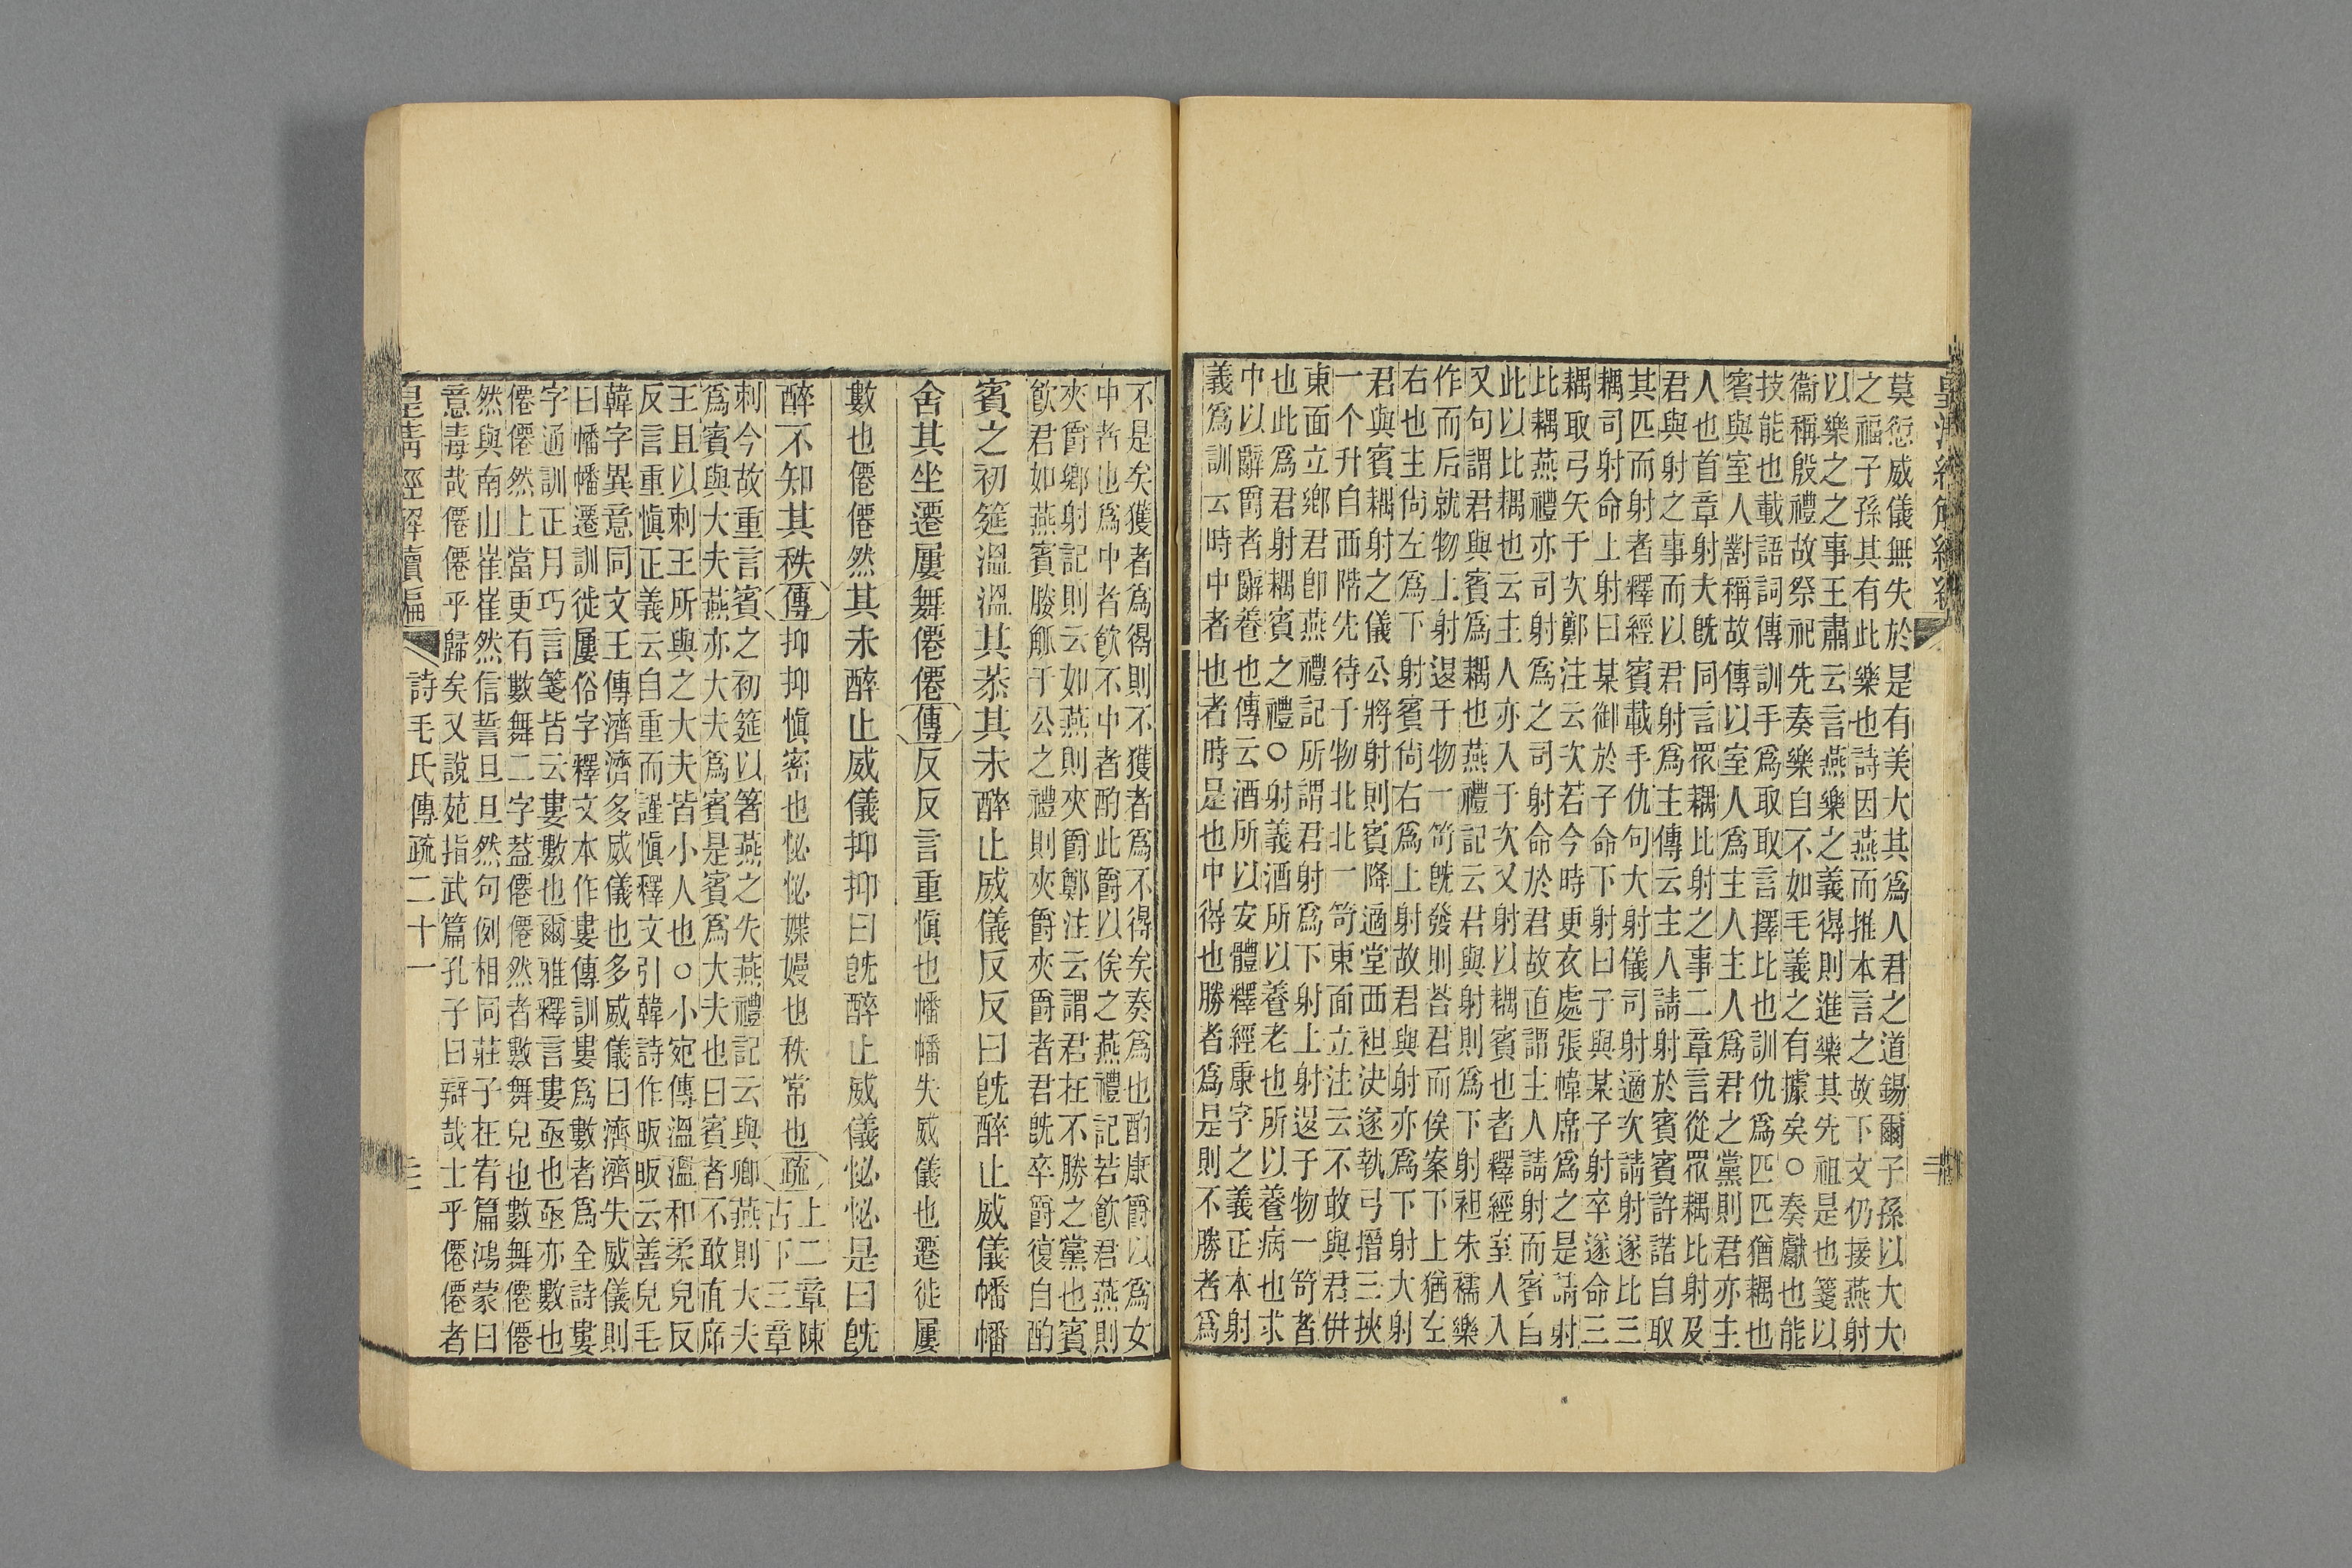 莫愆威儀無失於是有美大其爲人君之道錫爾子孫以大大
之福子孫其有此樂也詩因燕而推本言之故下文仍接燕射
以樂之之事王肅云言燕樂之義得則進樂其先祖是也箋以
衞稱殷禮故祭祀先奏樂自不如毛義之有據矣○奏獻也能
技能也載語詞傳訓手爲取取言擇比也訓仇爲匹匹猶耦也
賓與室人對稱故傳以室人爲主人主人爲君之黨則君亦主
人也首章射夫旣同言眾耦比射之事二章言從眾耦比射及
君與射之事而以君射爲主傳云主人請射於賓賓許諾自取
其匹而射者釋經賓載手仇句大射儀司射適次請射遂比三
耦司射命上射曰某御於子命下射曰子與某子射卒遂命三
耦取弓矢于次鄭注云次若今時更衣處張幃席爲之是請射
比耦燕禮亦司射爲之司射命於君故直謂主人請射而賓自
此以比耦也云主人亦入于次又射以耦賓也者釋經室人入
又句謂君與賓爲耦也燕禮記云君與射則爲下射袒朱襦樂
作而后就物上射退于物一笴旣發則荅君而俟案下上猶左
右也主尙左爲下射賓尙右爲上射故君與射亦爲下射大射
君與賓耦射之儀公將射則賓降適堂西袒決遂執弓搢三挾
一个升自西階先待于物北北一笴東面立注云不敢與君併
東面立鄉君卽燕禮記所謂君射爲下射上射退于物一笴者
也此爲君射耦賓之禮○射義酒所以養老也所以養病也求
中以辭爵者辭養也傳云酒所以安體釋經康字之義正本射
義爲訓云時中者也者時是也中得也勝者爲是則不勝者爲
不是矣獲者爲得則不獲者爲不得矣奏爲也酌康爵以爲女
中者也爲中者飮不中者酌此爵以俟之燕禮記若飮君燕則
夾爵鄉射記則云如燕則夾爵鄭注云謂君在不勝之黨也賓
飮君如燕賓媵觚于公之禮則夾爵夾爵者君旣卒爵復自酌
賓之初筵溫溫其恭其未醉止威儀反反曰旣醉止威儀幡幡
舍其坐遷屢舞僊僊傳反反言重愼也幡幡失威儀也遷徙屢
數也僊僊然其未醉止威儀抑抑曰旣醉止威儀怭怭是曰旣
醉不知其秩傳抑抑愼密也怭怭媟嫚也秩常也疏上二章陳
古下三章
刺今故重言賓之初筵以箸燕之失燕禮記云與卿燕則大夫
爲賓與大夫燕亦大夫爲賓是賓爲大夫也曰賓者不敢直席
王且以刺王所與之大夫皆小人也○小宛傳溫溫和柔皃反
反言重愼正義云自重而謹愼釋文引韓詩作昄昄云善皃毛
韓字異意同文王傳濟濟多威儀也多威儀曰濟濟失威儀則
曰幡幡遷訓徙屢俗字釋文本作婁傳訓婁爲數者爲全詩婁
字通訓正月巧言箋皆云婁數也爾雅釋言婁亟也亟亦數也
僊僊然上當更有數舞二字葢僊僊然者數舞皃也數舞僊僊
然與南山崔崔然信誓旦旦然句例相同莊子在宥篇鴻蒙曰
意毒哉僊僊乎歸矣又說苑指武篇孔子曰辯哉士乎僊僊者
皇淸經解續編
詩毛氏傳疏二十一